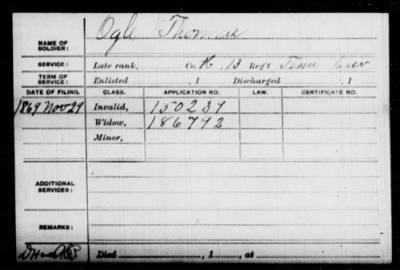 NAME OF SOLDIER: Ogle Thomas
SERVICE: Late rank, Co. K, 13 Reg't Tenn Cav
TERM OF SERVICE: Enlisted , 1 Discharged , 1
DATE OF FILING. CLASS. APPLICATION NO. LAW. CERTIFICATE NO.
1869 Nov 29 Invalid, 150239
Widow, 186792
Minor,
ADDITIONAL SERVICES:
REMARKS:
Died , 1 , at